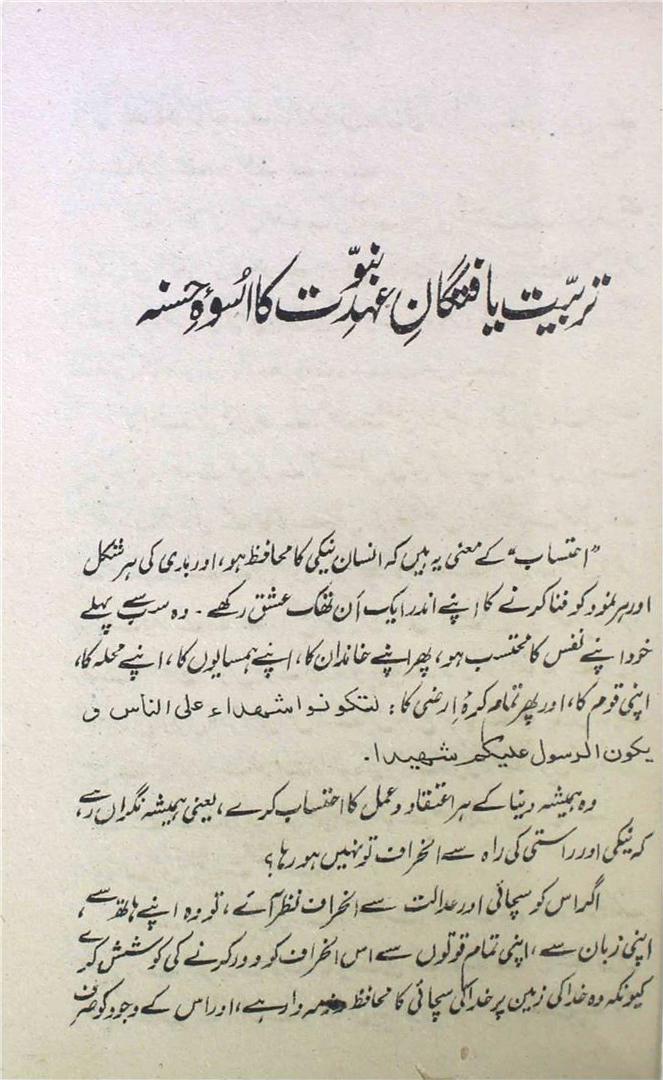 تربیّت یافتگانِ عہدِ نبوّت کا اسُوۂِ حسنہ
”احتساب“ کے معنی یہ ہیں کہ انسان نیکی کا محافظ ہو، اور بدی کی ہر شکل
اور ہر نمود کو فنا کرنے کا اپنے اندر ایک اَن تھک عشق رکھے۔ وہ سب سے پہلے
خود اپنے نفس کا محتسب ہو، پھر اپنے خاندان کا، اپنے ہمسایوں کا، اپنے محلہ کا،
اپنی قوم کا، اور پھر تمام کرۂِ ارضی کا: لتکونوا شھداء علی الناس و
یکون الرسول علیکم شھیدا۔
وہ ہمیشہ دنیا کے ہر اعتقاد و عمل کا احتساب کرے، یعنی ہمیشہ نگراں رہے،
کہ نیکی اور راستی کی راہ سے انحراف تو نہیں ہو رہا؟
اگر اس کو سچائی اور عدالت سے انحراف نظر آئے، تو وہ اپنے ہاتھ سے،
اپنی زبان سے، اپنی تمام قوتوں سے اس انحراف کو دور کرنے کی کوشش کرے
کیونکہ وہ خدا کی زمین پر خدا کی سچائی کا محافظ و ذمہ دار ہے، اور اس کے وجود کو صرف